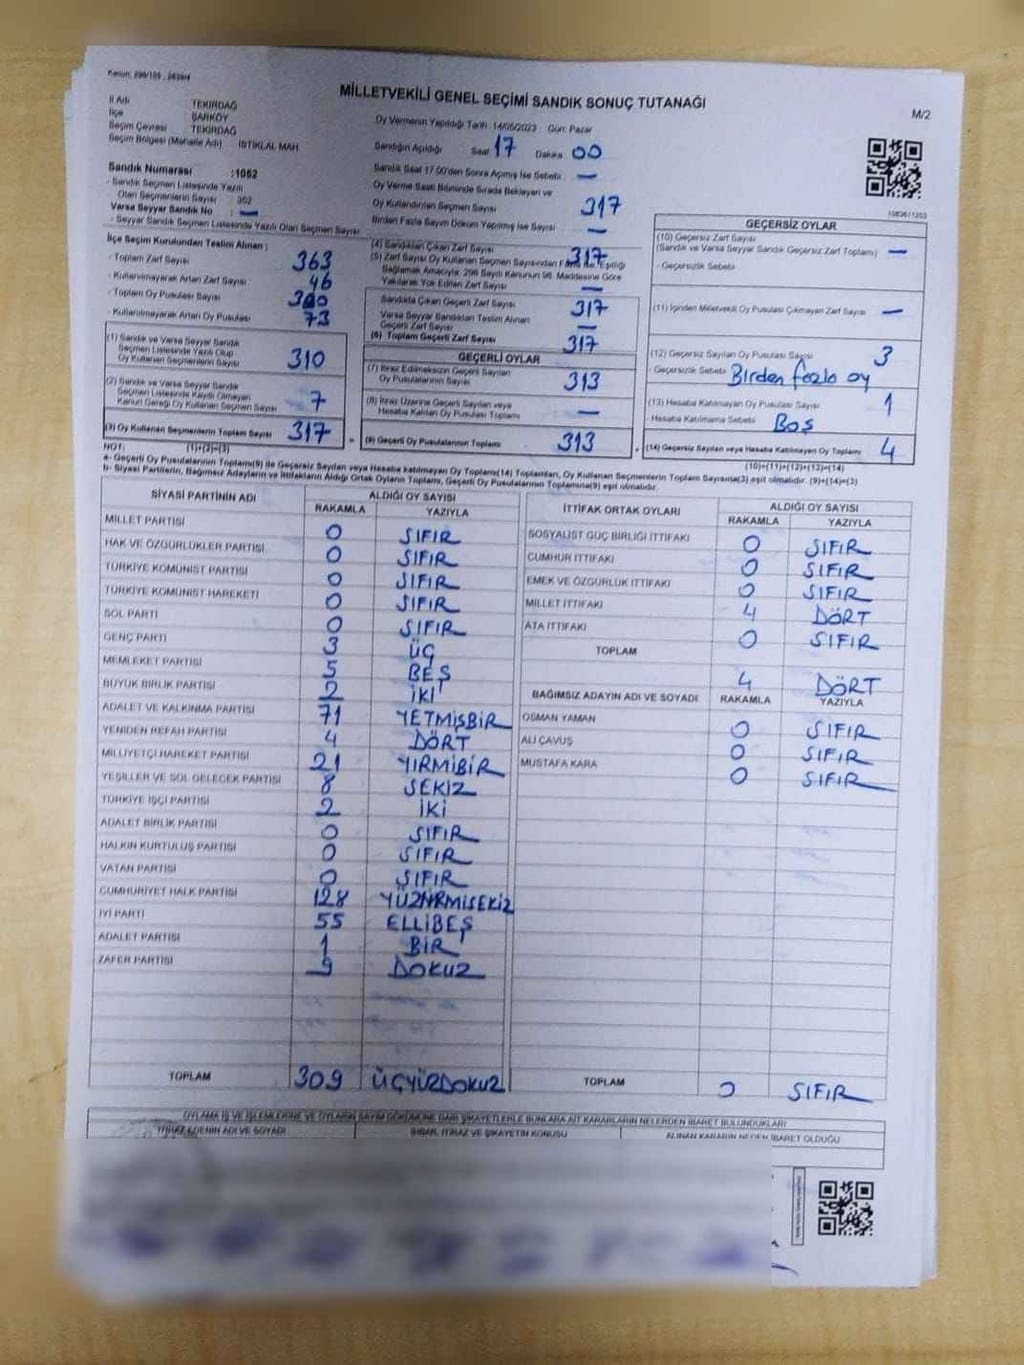 Kanun: 298/105 , 2839/4
MİLLETVEKİLİ GENEL SEÇİMİ SANDIK SONUÇ TUTANAĞI
M/2
İl Adı TEKİRDAĞ
İlçe ŞARKÖY
Seçim Çevresi TEKİRDAĞ
Seçim Bölgesi (Mahalle Adı) İSTİKLAL MAH
Sandık Numarası :1062
- Sandık Seçmen Listesinde Yazılı
Olan Seçmenlerin Sayısı 352
Varsa Seyyar Sandık No : —
- Seyyar Sandık Seçmen Listesinde Yazılı Olan Seçmen Sayısı
Oy Vermenin Yapıldığı Tarih 14/05/2023 Gün: Pazar
Sandığın Açıldığı Saat 17 Dakika 00
Sandık Saat 17.00'den Sonra Açılmış İse Sebebi : —
Oy Verme Saati Bitiminde Sırada Bekleyen ve
Oy Kullandırılan Seçmen Sayısı 317
Birden Fazla Sayım Döküm Yapılmış İse Sayısı —
1083611203
İlçe Seçim Kurulundan Teslim Alınan ;
- Toplam Zarf Sayısı 363
- Kullanılmayarak Artan Zarf Sayısı 46
- Toplam Oy Pusulası Sayısı
- Kullanılmayarak Artan Oy Pusulası 73
(1) Sandık ve Varsa Seyyar Sandık
Seçmen Listesinde Yazılı Olup
Oy Kullanan Seçmenlerin Sayısı 310
(2) Sandık ve Varsa Seyyar Sandık
Seçmen Listesinde Kaydı Olmayan
Kanun Gereği Oy Kullanan Seçmen Sayısı 7
(3) Oy Kullanan Seçmenlerin Toplam Sayısı 317
(1)+(2)=(3)
(4) Sandıktan Çıkan Zarf Sayısı 317
(5) Zarf Sayısı Oy Kullanan Seçmen Sayısından Fazla İse, Eşitliği
Sağlamak Amacıyla, 298 Sayılı Kanunun 98. Maddesine Göre
Yakılarak Yok Edilen Zarf Sayısı —
Sandıkta Çıkan Geçerli Zarf Sayısı 317
Varsa Seyyar Sandıktan Teslim Alınan
Geçerli Zarf Sayısı —
(6) Toplam Geçerli Zarf Sayısı 317
GEÇERLİ OYLAR
(7) İtiraz Edilmeksizin Geçerli Sayılan
Oy Pusulalarının Sayısı 313
(8) İtiraz Üzerine Geçerli Sayılan veya
Hesaba Katılan Oy Pusulası Toplamı —
(9) Geçerli Oy Pusulalarının Toplamı 313
GEÇERSİZ OYLAR
(10) Geçersiz Zarf Sayısı
(Sandık ve Varsa Seyyar Sandık Geçersiz Zarf Toplamı) —
- Geçersizlik Sebebi
(11) İçinden Milletvekili Oy Pusulası Çıkmayan Zarf Sayısı —
(12) Geçersiz Sayılan Oy Pusulası Sayısı 3
- Geçersizlik Sebebi Birden fazla oy
(13) Hesaba Katılmayan Oy Pusulası Sayısı 1
Hesaba Katılmama Sebebi Boş
(14) Geçersiz Sayılan veya Hesaba Katılmayan Oy Toplamı 4
(10)+(11)+(12)+(13)=(14)
NOT:
a- Geçerli Oy Pusulalarının Toplamı(9) ile Geçersiz Sayılan veya Hesaba katılmayan Oy Toplamı(14) Toplamları, Oy Kullanan Seçmenlerin Toplam Sayısına(3) eşit olmalıdır. (9)+(14)=(3)
b- Siyasi Partilerin, Bağımsız Adayların ve İttifakların Aldığı Ortak Oyların Toplamı, Geçerli Oy Pusulalarının Toplamına(9) eşit olmalıdır.
SİYASİ PARTİNİN ADI ALDIĞI OY SAYISI
RAKAMLA YAZIYLA
MİLLET PARTİSİ 0 SIFIR
HAK VE ÖZGÜRLÜKLER PARTİSİ 0 SIFIR
TÜRKİYE KOMÜNİST PARTİSİ 0 SIFIR
TÜRKİYE KOMÜNİST HAREKETİ 0 SIFIR
SOL PARTİ 0 SIFIR
GENÇ PARTİ 3 ÜÇ
MEMLEKET PARTİSİ 5 BEŞ
BÜYÜK BİRLİK PARTİSİ 2 İKİ
ADALET VE KALKINMA PARTİSİ 71 YETMİŞBİR
YENİDEN REFAH PARTİSİ 4 DÖRT
MİLLİYETÇİ HAREKET PARTİSİ 21 YİRMİBİR
YEŞİLLER VE SOL GELECEK PARTİSİ 8 SEKİZ
TÜRKİYE İŞÇİ PARTİSİ 2 İKİ
ADALET BİRLİK PARTİSİ 0 SIFIR
HALKIN KURTULUŞ PARTİSİ 0 SIFIR
VATAN PARTİSİ 0 SIFIR
CUMHURİYET HALK PARTİSİ 128 YÜZYİRMİSEKİZ
İYİ PARTİ 55 ELLİBEŞ
ADALET PARTİSİ 1 BİR
ZAFER PARTİSİ 9 DOKUZ
TOPLAM 309 ÜÇYÜZDOKUZ
İTTİFAK ORTAK OYLARI ALDIĞI OY SAYISI
RAKAMLA YAZIYLA
SOSYALİST GÜÇ BİRLİĞİ İTTİFAKI 0 SIFIR
CUMHUR İTTİFAKI 0 SIFIR
EMEK VE ÖZGÜRLÜK İTTİFAKI 0 SIFIR
MİLLET İTTİFAKI 4 DÖRT
ATA İTTİFAKI 0 SIFIR
TOPLAM 4 DÖRT
BAĞIMSIZ ADAYIN ADI VE SOYADI RAKAMLA YAZIYLA
OSMAN YAMAN 0 SIFIR
ALİ ÇAVUŞ 0 SIFIR
MUSTAFA KARA 0 SIFIR
TOPLAM 0 SIFIR
OYLAMA İŞ VE İŞLEMLERİNE VE OYLARIN SAYIM DÖKÜMÜNE DAİR ŞİKAYETLERLE BUNLARA AİT KARARLARIN NELERDEN İBARET BULUNDUKLARI
İTİRAZ EDENİN ADI VE SOYADI İHBAR, İTİRAZ VE ŞİKAYETİN KONUSU ALINAN KARARIN NEDEN İBARET OLDUĞU